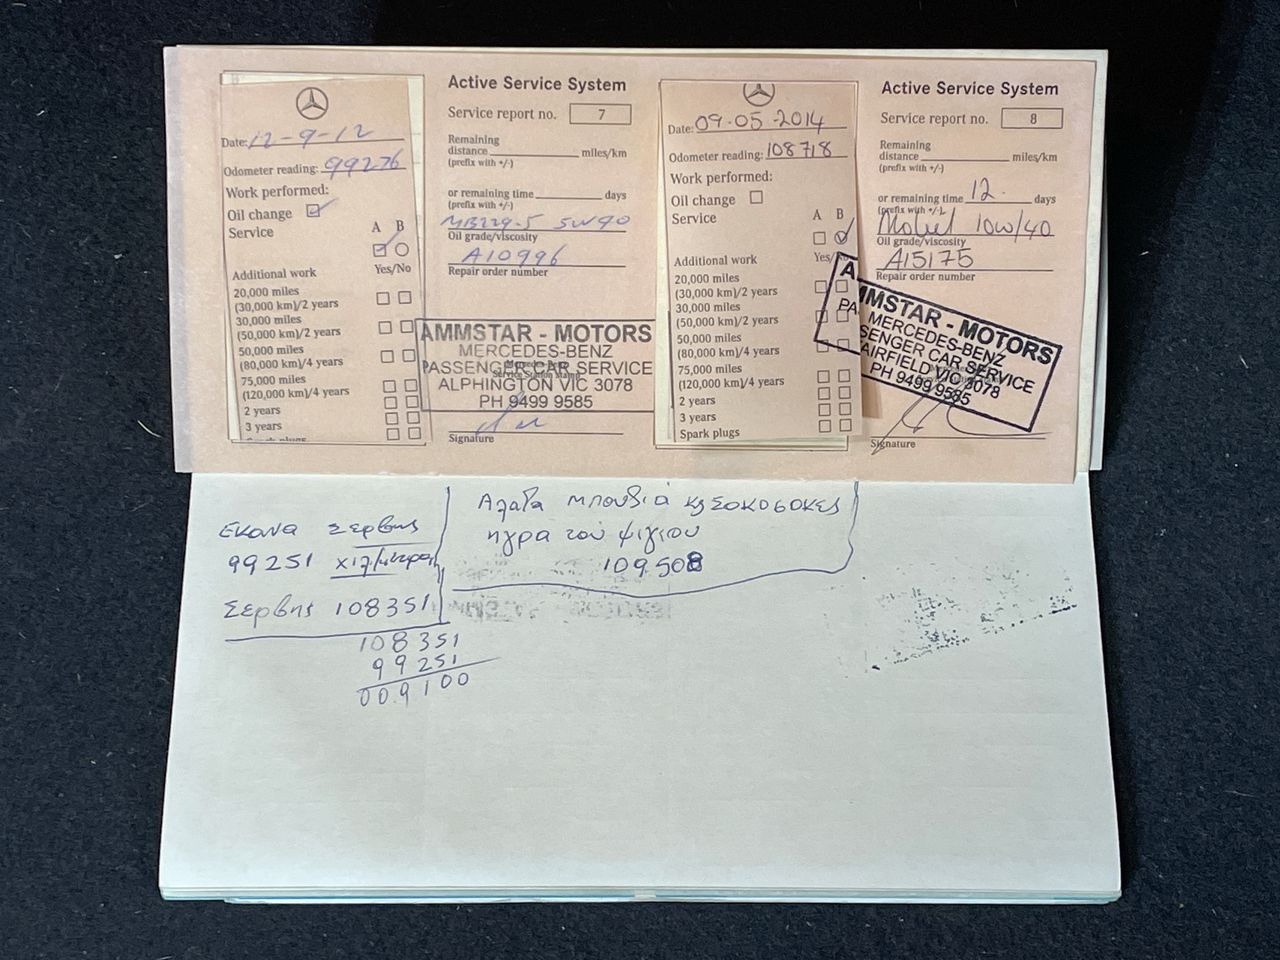 Date: 12-9-12
Odometer reading: 99276
Work performed:
Oil change
Service
A B
Additional work Yes/No
20,000 miles
(30,000 km)/2 years
30,000 miles
(50,000 km)/2 years
50,000 miles
(80,000 km)/4 years
75,000 miles
(120,000 km)/4 years
2 years
3 years
Spark plugs
Active Service System
Service report no. 7
Remaining
distance miles/km
(prefix with +/-)
or remaining time days
(prefix with +/-)
MB229-5 5W40
Oil grade/viscosity
A10996
Repair order number
AMMSTAR - MOTORS
MERCEDES-BENZ
PASSENGER CAR SERVICE
ALPHINGTON VIC 3078
PH 9499 9585
Signature
Date: 09-05-2014
Odometer reading: 108718
Work performed:
Oil change
Service
A B
Additional work Yes/No
20,000 miles
(30,000 km)/2 years
30,000 miles
(50,000 km)/2 years
50,000 miles
(80,000 km)/4 years
75,000 miles
(120,000 km)/4 years
2 years
3 years
Spark plugs
Active Service System
Service report no. 8
Remaining
distance miles/km
(prefix with +/-)
or remaining time 12. days
(prefix with +/-)
10W/40
Oil grade/viscosity
A15175
Repair order number
AMMSTAR - MOTORS
MERCEDES-BENZ
PASSENGER CAR SERVICE
FAIRFIELD VIC 3078
PH 9499 9585
Signature
εκανα Σερβης
99251 χιλ/μετρα
Σερβης 108351
108351
99251
009100
Αλαξα μπουζιά
του ψιγιου
109.508